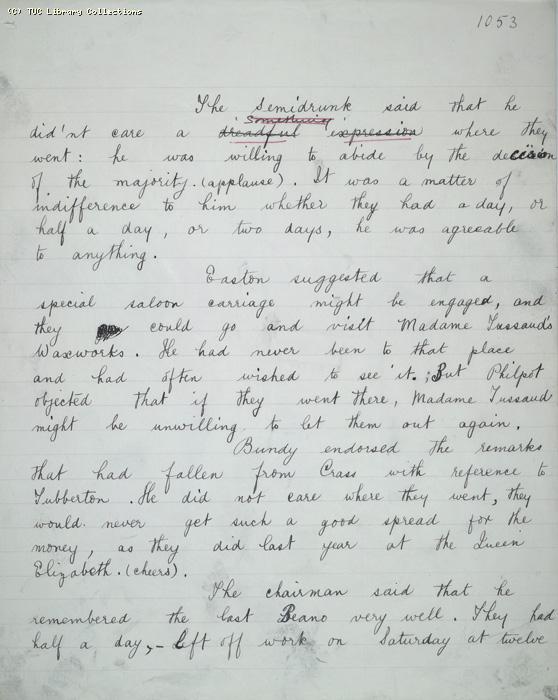 (C) TUC Library Collections
1053
The Semidrunk said that he
something
did'nt care a dreadful expression where they
went: he was willing to abide by the decision
of the majority. (applause). It was a matter of
indifference to him whether they had a day, or
half a day, or two days, he was agreeable
to anything.
Easton suggested that a
special saloon carriage might be engaged, and
they could go and visit Madame Tussaud's
Waxworks. He had never been to that place
and had often wished to see it. ; But Philpot
objected that if they went there, Madame Tussaud
might be unwilling to let them out again.
Bundy endorsed the remarks
that had fallen from Crass with reference to
Tubberton. He did not care where they went, they
would never get such a good spread for the
money, as they did last year at the Queen
Elizabeth. (cheers).
The chairman said that he
remembered the last Beano very well. They had
half a day, - left off work on Saturday at twelve